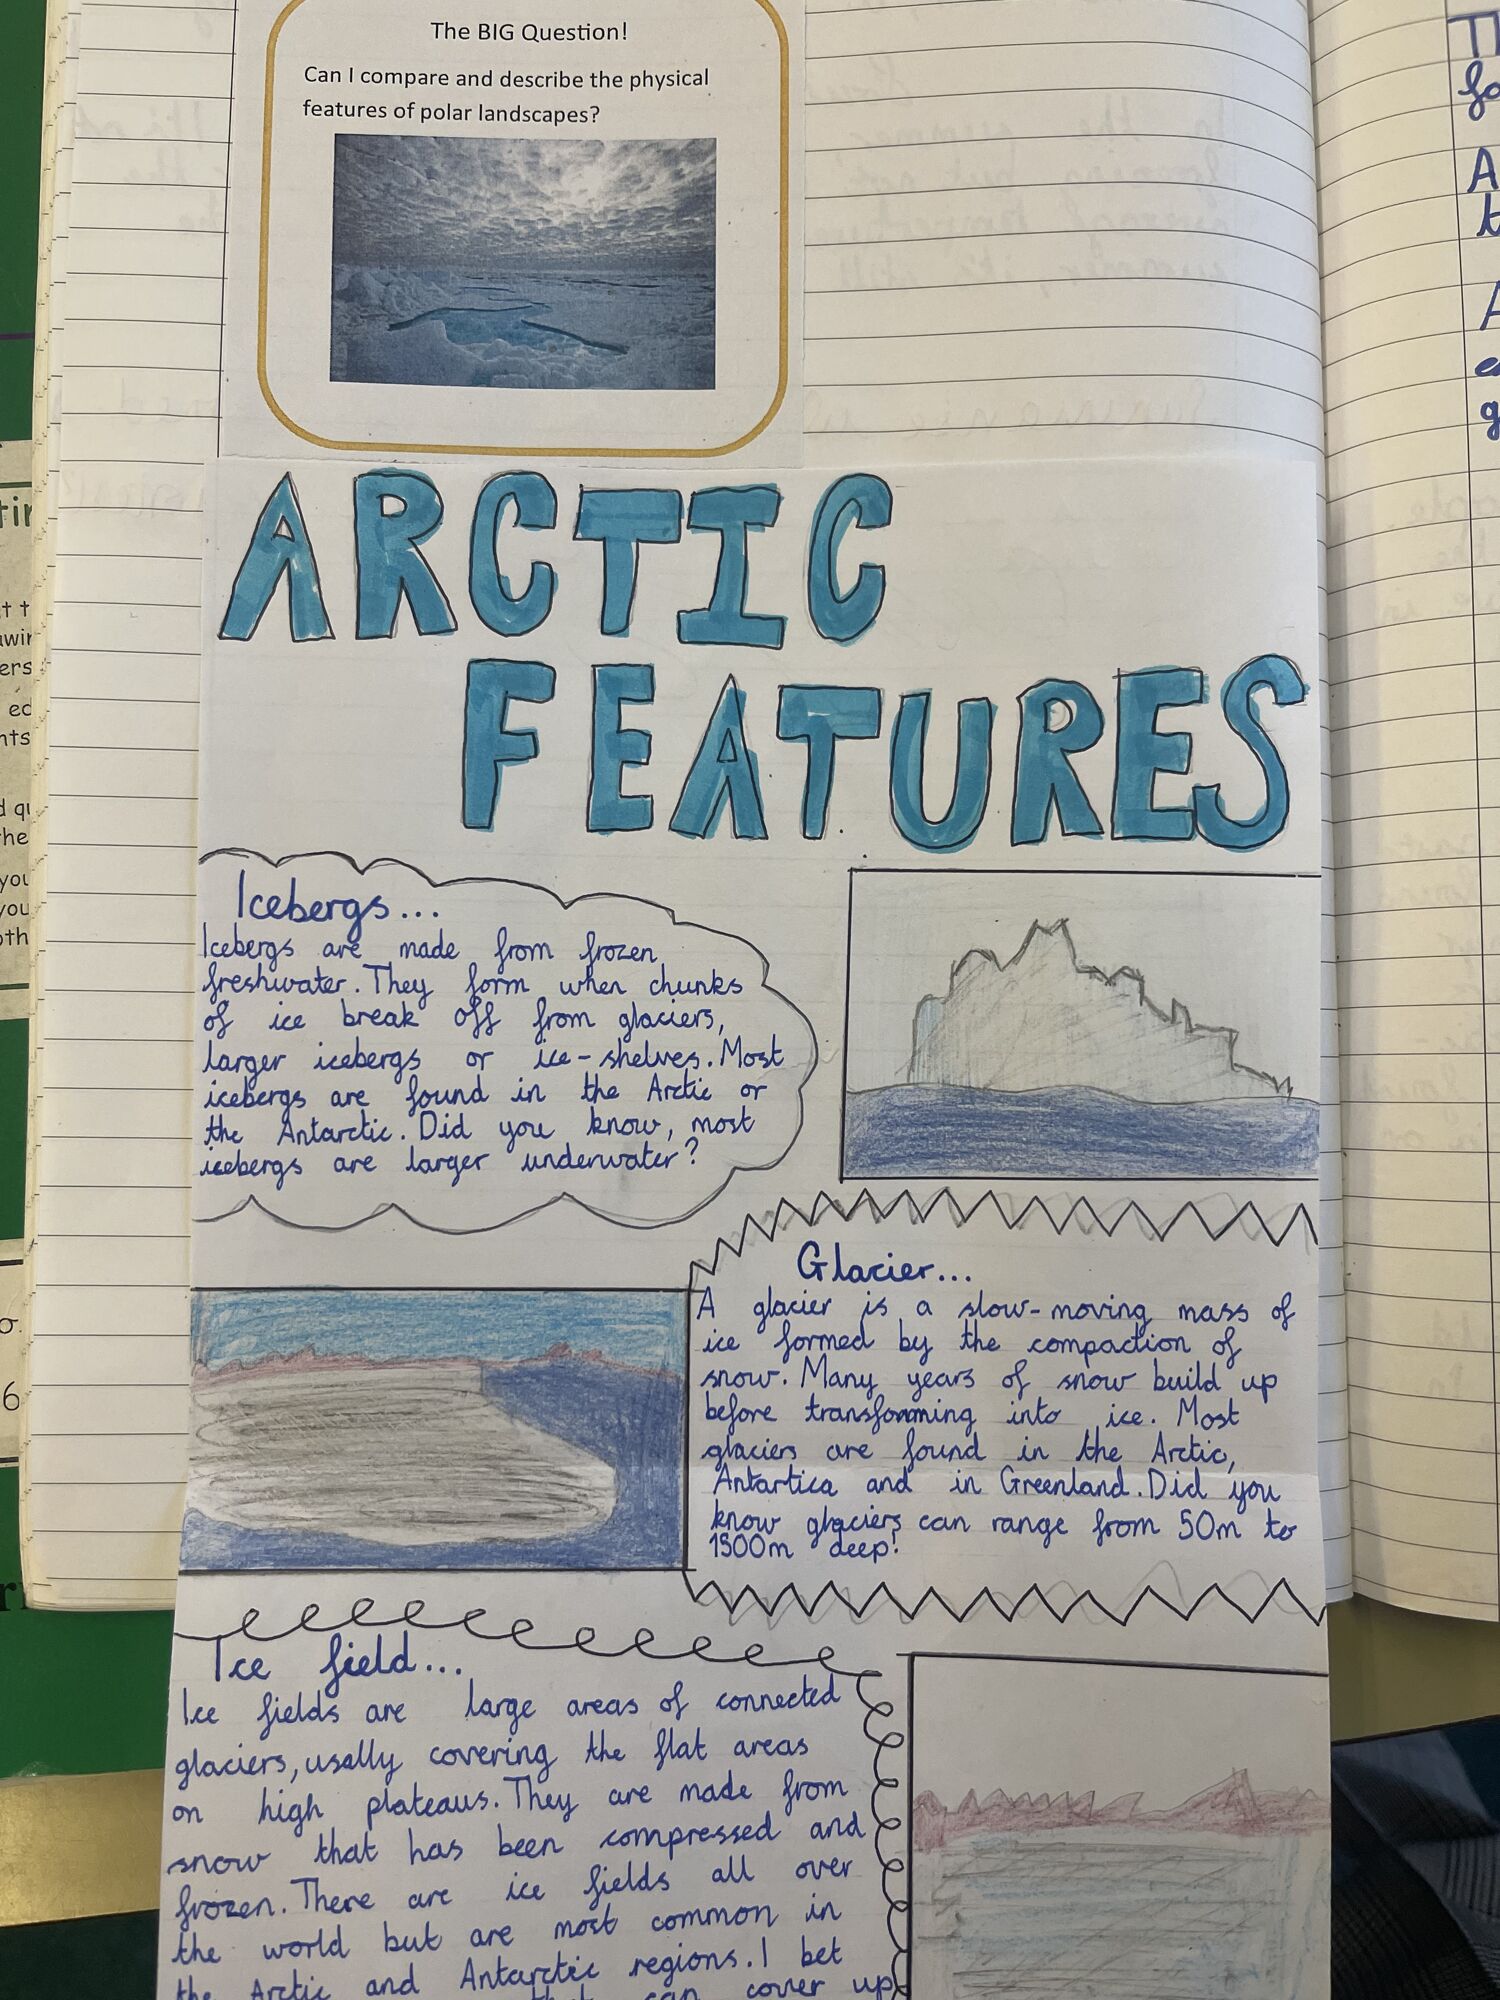 The BIG Question!
Can I compare and describe the physical
features of polar landscapes?
ARCTIC
FEATURES
Icebergs...
Icebergs are made from frozen
freshwater. They form when chunks
of ice break off from glaciers,
larger icebergs or ice-shelves. Most
icebergs are found in the Arctic or
the Antarctic. Did you know, most
icebergs are larger underwater?
Glacier...
A glacier is a slow-moving mass of
ice formed by the compaction of
snow. Many years of snow build up
before transforming into ice. Most
glaciers are found in the Arctic,
Antartica and in Greenland. Did you
know glaciers can range from 50m to
1500m deep!
Ice field...
Ice fields are large areas of connected
glaciers, usally covering the flat areas
on high plateaus. They are made from
snow that has been compressed and
frozen. There are ice fields all over
the world but are most common in
the Arctic and Antarctic regions. I bet
that can cover up